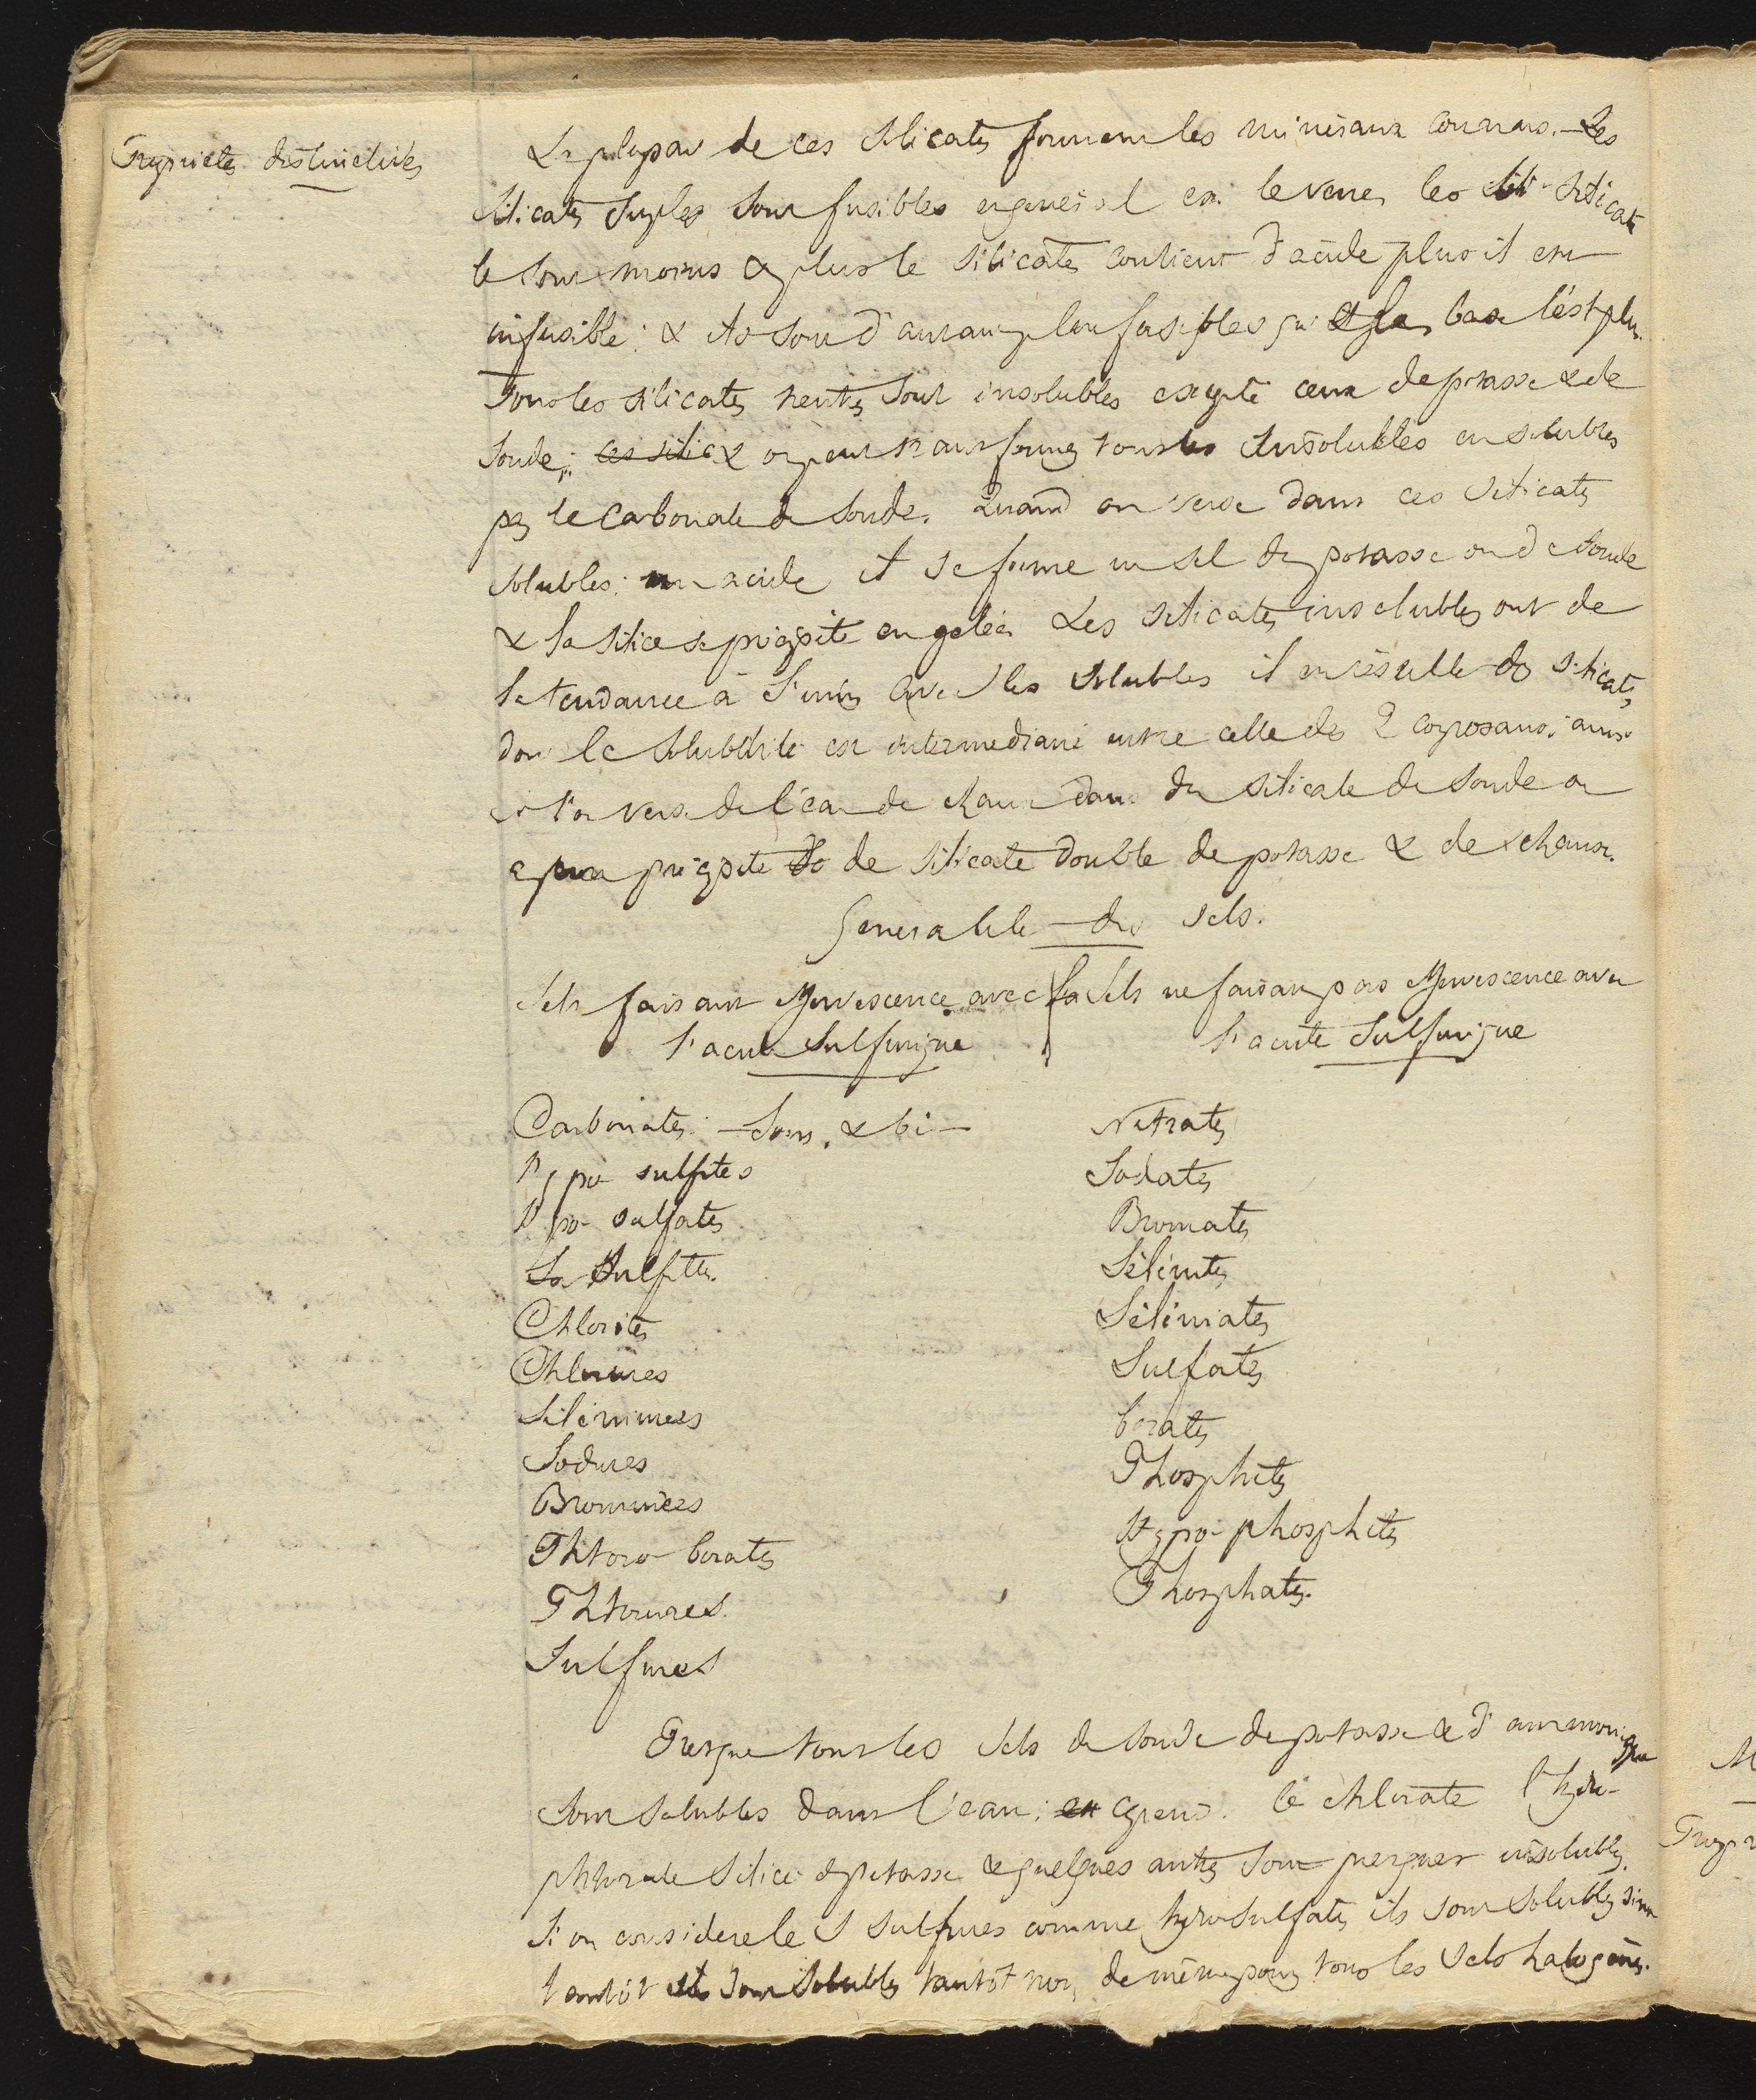 Propriétés distinctives
La plupar de ces silicates forment les minéraux connus. Les
silicates simples sont fusibles en general ex. le verre, les silicates
le sont moins & plus le silicates contient d'acide plus il est
infusible. & ils sont d'autant plus fusibles que la base l'est plus.
Tous les silicates neutres sont insolubles excepté ceux de potasse & de
soude; ces silic & on peut transformer tous les insolubles en solubles
par le carbonate de soude. Quand on verse dans ces silicates
solubles un acide il se forme un sel de potasse ou de soude
& la silice se précipite en gelée. Les silicates insolubles ont de
la tendance à s'unir avec les solubles il en résulte des silicates
dont la solubilité est intermediaire entre celle des 2 composans. ainsi
si l'on verse de l'eau de chaux dans du silicate de soude on
a un précipité de silicate double de potasse & de chaux.
Generalité des sels.
Sels faisant effervescence avec
l'acide sulfurique
Sels ne faisant pas effervescence avec
l'acide sulfurique
Carbonates - sous. & bi -
Hypo sulfites
Hypo- sulfates
Sulfites.
Chlorites
Chlorures
Séléniures
Iodures
Bromures
Phtoro borates
Phtorures.
Sulfures
Nitrates
Iodates
Bromates
Sélénites
Séléniates
Sulfates
borates
Phosphites
Hypo- phosphites
Phosphates.
Presque tous les sels de soude de potasse & d'ammoniaque
sont solubles dans l'eau; cepend. le chlorate l'hydro-
phtorate silicé de potasse & quelques autres sont presques insolubles.
Si on considere les sulfures comme hydrosulfates ils sont solubles sinon
tantôt ils sont solubles tantôt non, de même pour tous les sels halogènes.